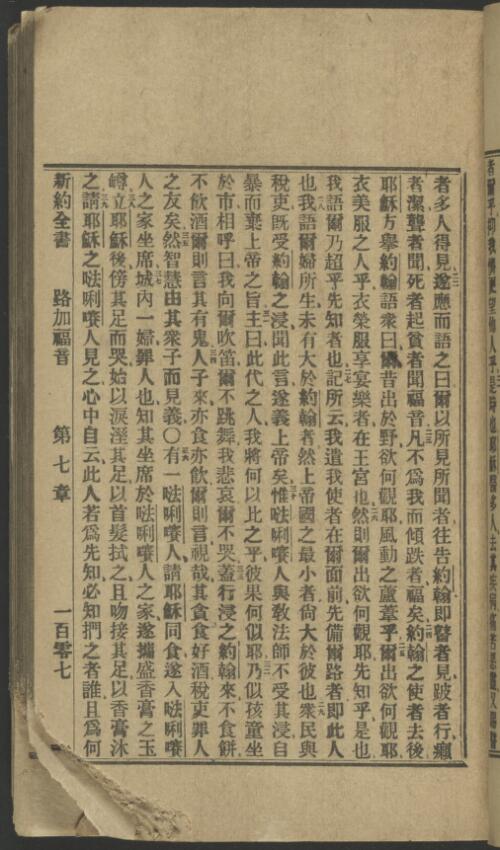 者多人得見遂應而語之曰爾以所見所聞者往告約翰卽瞽者見跛者行癩
者潔聾者聞死者起貧者聞福音凡不爲我而傾跌者福矣約翰之使者去後
耶穌方舉約翰語衆曰爾昔出於野欲何觀耶風動之蘆葦乎爾出欲何觀耶
衣美服之人乎衣榮服享宴樂者在王宮也然則爾出欲何觀耶先知乎是也
我語爾乃超乎先知者也記所云我遣我使者在爾面前先備爾路者卽此人
也我語爾婦所生未有大於約翰者然上帝國之最小者尙大於彼也衆民與
稅吏旣受約翰之浸聞此言遂義上帝矣惟㕸唎㘔人與敎法師不受其浸自
暴而棄上帝之旨主曰此代之人我將何以比之乎彼果何似耶乃似孩童坐
於市相呼曰我向爾吹笛爾不跳舞我悲哀爾不哭蓋行浸之約翰來不食餅
不飲酒爾則言其有鬼人子來亦食亦飲爾則言視哉其貪食好酒稅吏罪人
之友矣然智慧由其衆子而見義〇有一㕸唎㘔人請耶穌同食遂入㕸唎㘔
人之家坐席城內一婦罪人也知其坐席於㕸唎㘔人之家遂攜盛香膏之玉
罇立耶穌後傍其足而哭始以淚溼其足以首髮拭之且吻接其足以香膏沐
之請耶穌之㕸唎㘔人見之心中自云此人若爲先知必知捫之者誰且爲何
新約全書 路加福音 第七章 一百零七